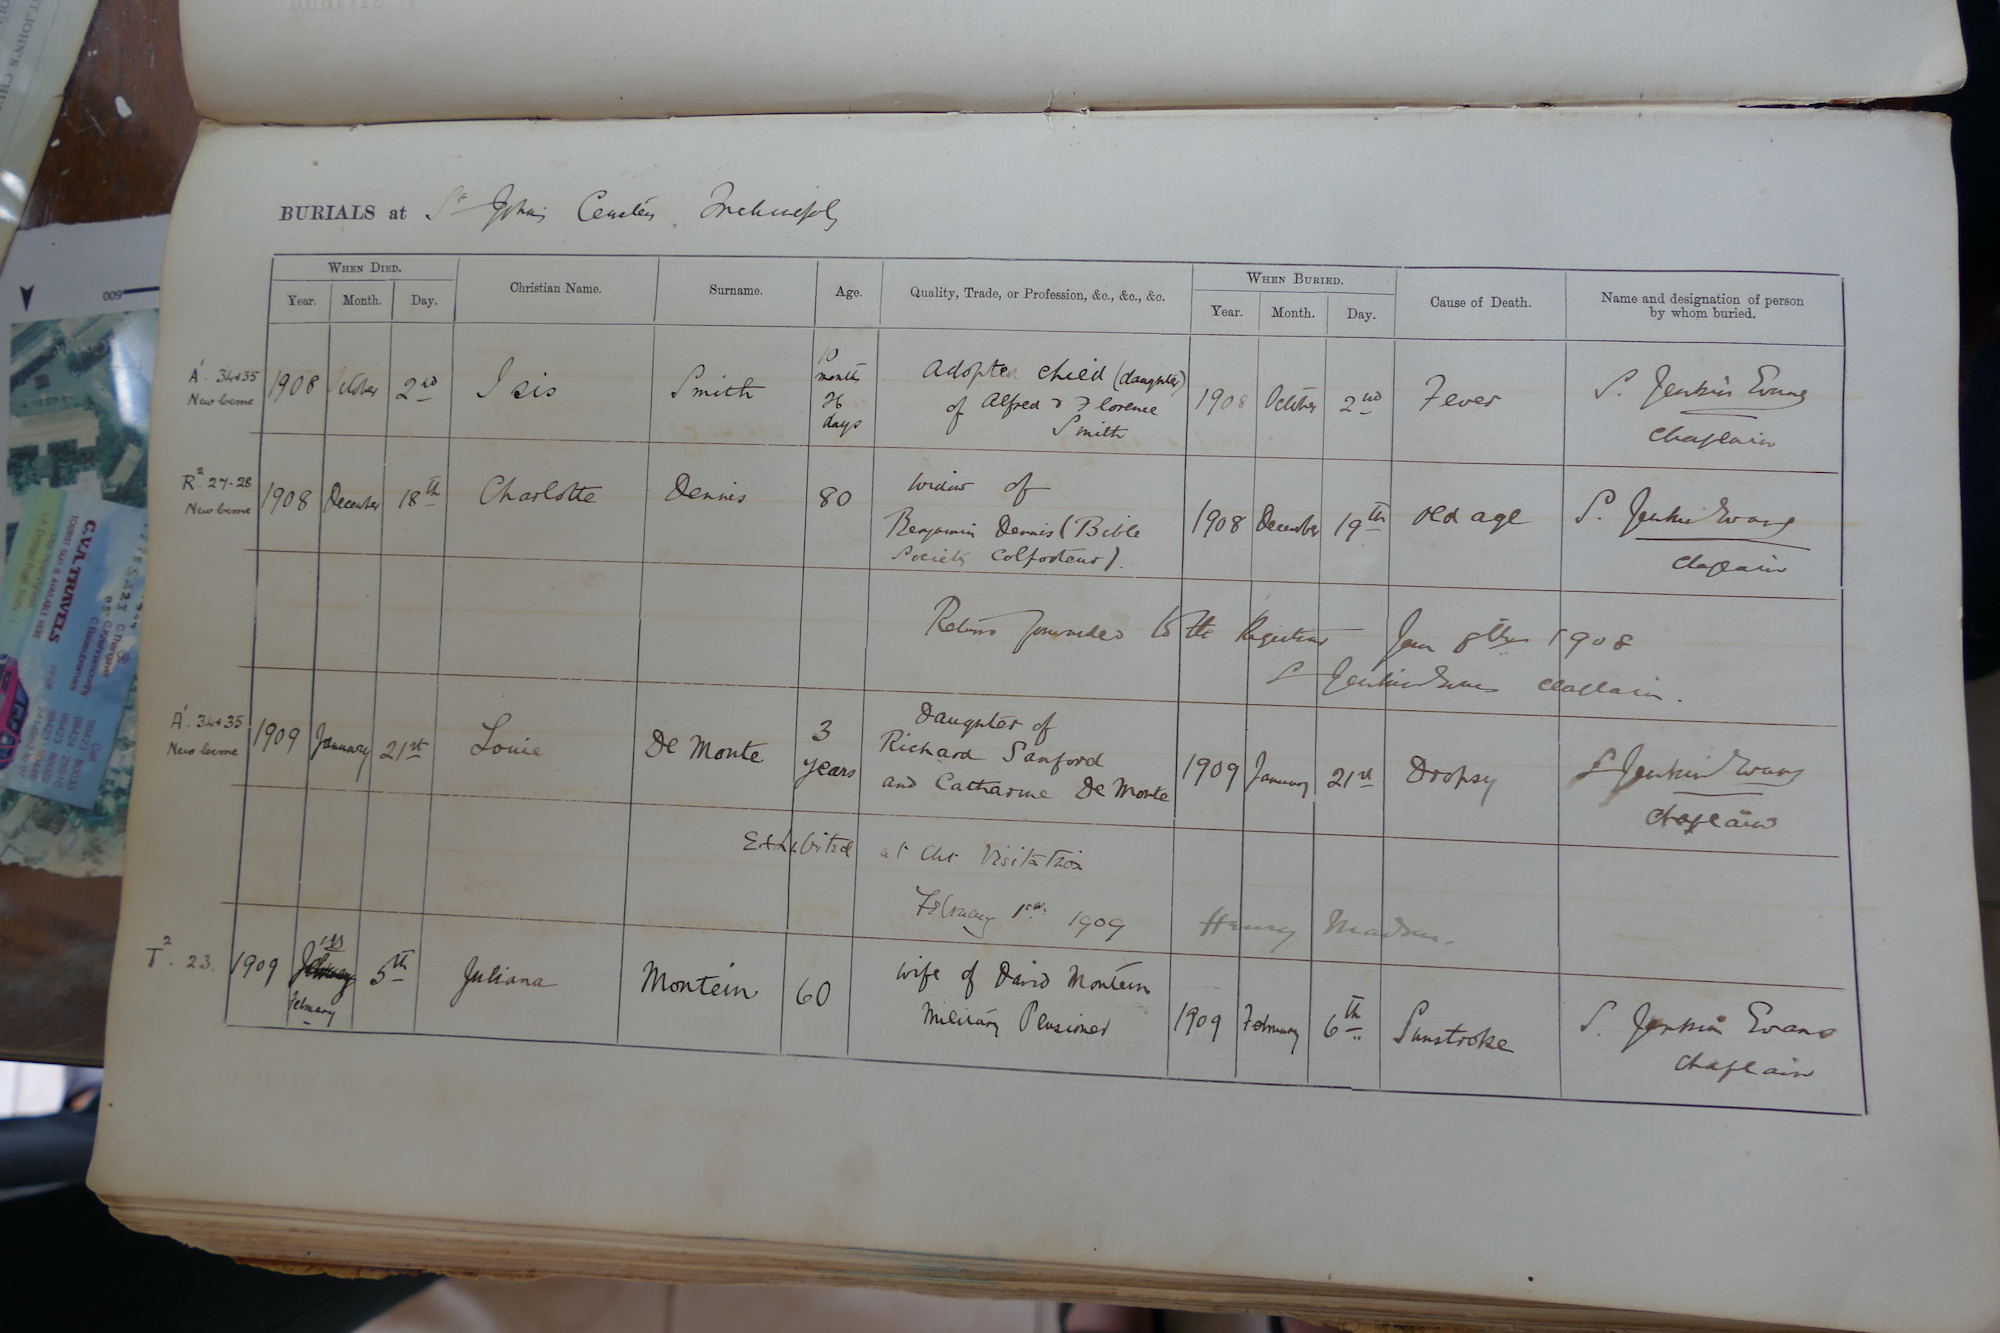 BURIALS at St John's Cemetery Trichinopoly
WHEN DIED.
Year. Month. Day. Christian Name. Surname. Age. Quality, Trade, or Profession, &c., &c., &c.
WHEN BURIED.
Year. Month. Day. Cause of Death. Name and designation of person
by whom buried.
A1. 34&35
New berme
1908 October 2nd Isis Smith
10
months
26
days
Adopted child (daughter)
of Alfred & Florence
Smith
1908 October 2nd Fever S. Jenkin Evans
chaplain
R2. 27-28
New berme
1908 December 18th Charlotte Dennis 80
Widow of
Benjamin Dennis (Bible
Society Colporteur).
1908 December 19th old age S. Jenkin Evans
chaplain
Returns forwarded to the Registrar Jan 8th 1908
S Jenkin Evans chaplain.
A1. 34&35
New berme
1909 January 21st Louie De Monte
3
years
Daughter of
Richard Sanford
and Catharine De Monte
1909 January 21st Dropsy S Jenkin Evans
chaplain
Exhibited at the Visitation
February 1st 1909 Henry Madras.
T2. 23.
1909 February 5th Juliana Montein 60
wife of David Montein
Military Pensioner
1909 February 6th Sunstroke S. Jenkin Evans
chaplain
009
C.V.A. TRAVELS
TOURIST TAXI IS AVAILABLE HERE